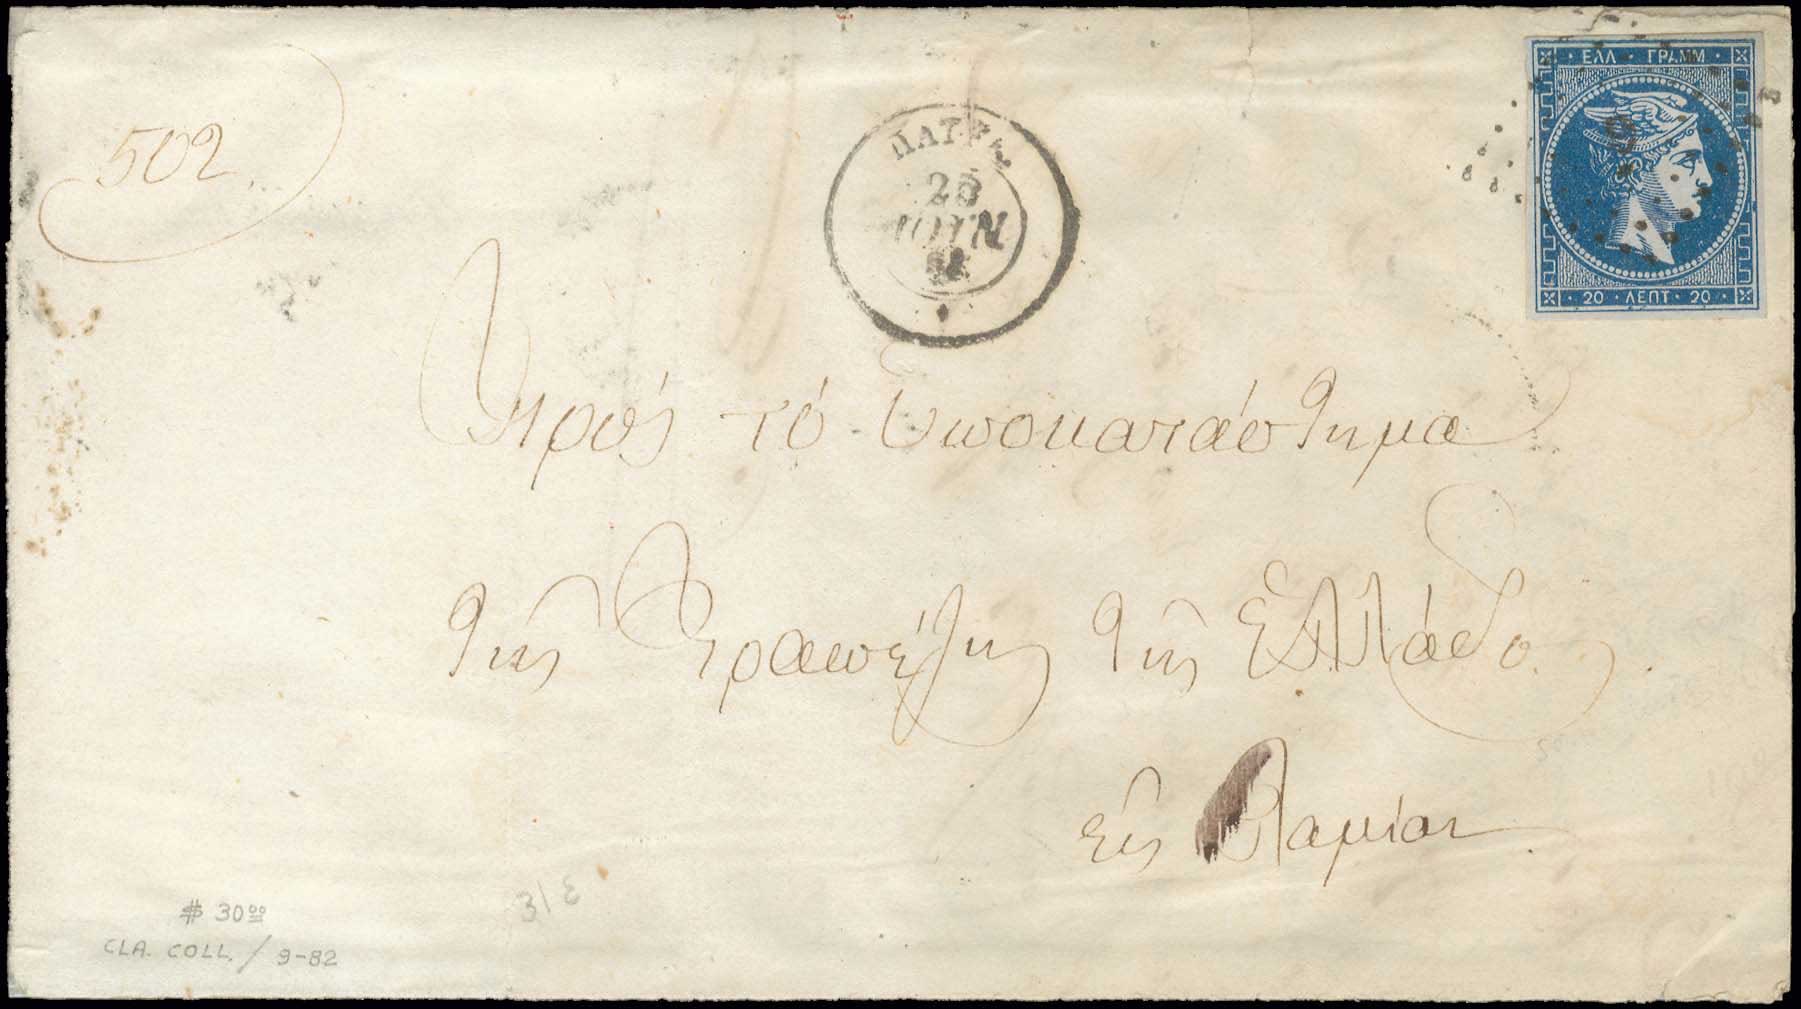 502
ΕΛΛ ΓΡΑΜΜ
9
ΠΑΤΡΑ
ΙΟΥΝ
20 ΛΕΠΤ 20
Πρὸς τὸ Ὑποκατάστημα
τῆς Τραπέζης τῆς Ἑλλάδος
εἰς Λαμίαν
31ε
$ 30 00
CLA. COLL. / 9-82